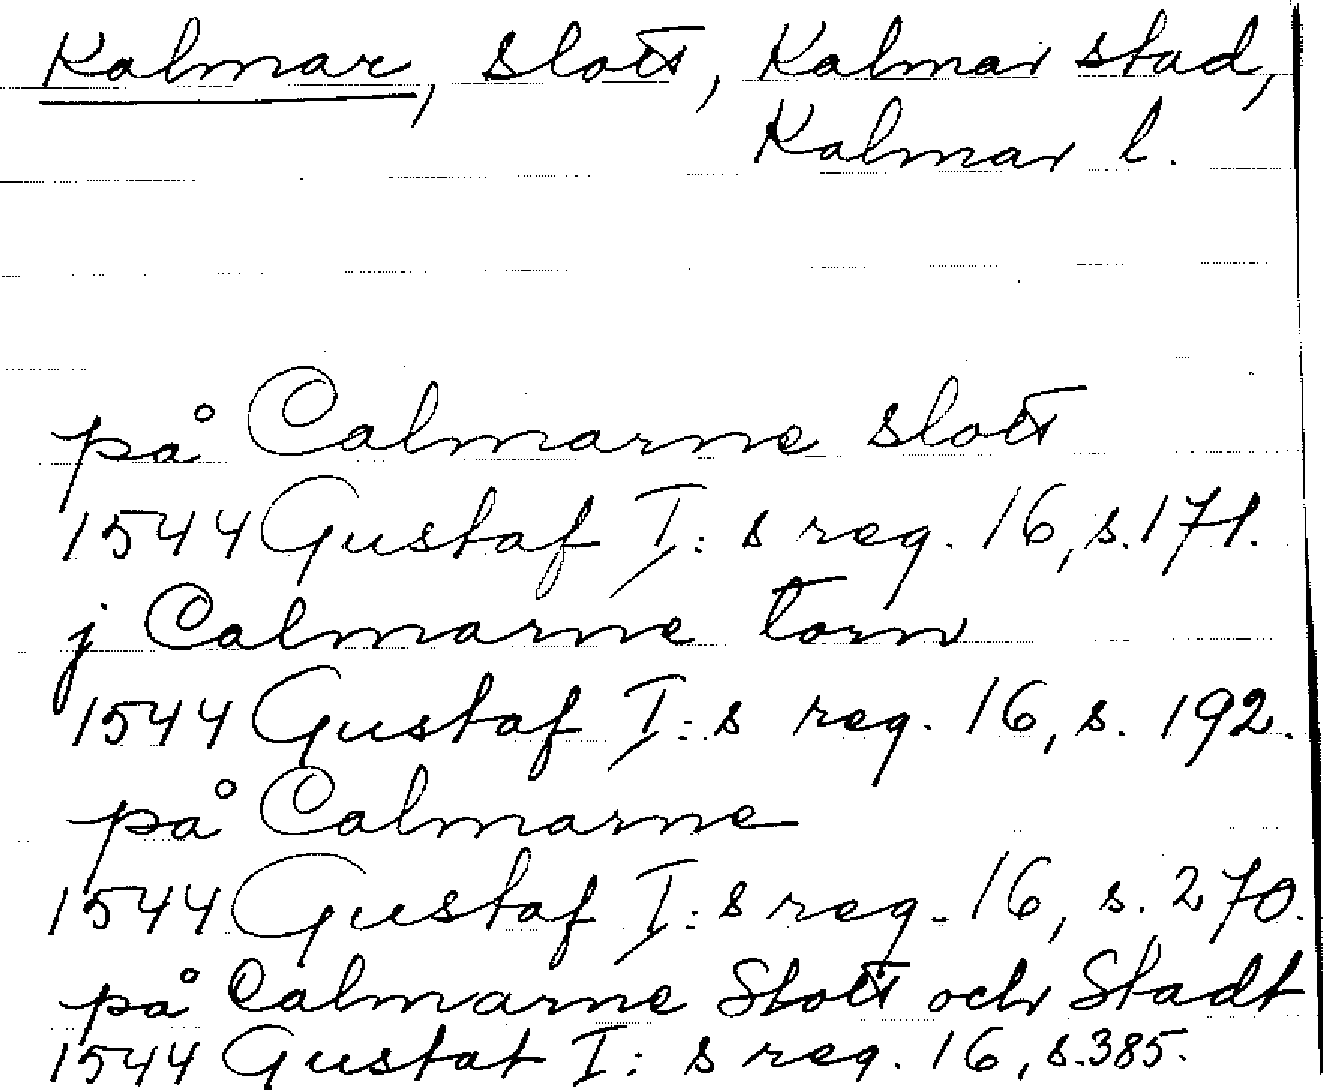 Kalmar, slott, Kalmar stad,
Kalmar l.
på Calmarne slott
1544 Gustaf I:s reg. 16, s. 171.
j Calmarne torn
1544 Gustaf I:s reg. 16, s. 192.
på Calmarne
1544 Gustaf I:s reg. 16, s. 270.
på Calmarne Slott och Stadt
1544 Gustaf I:s reg. 16, s. 385.